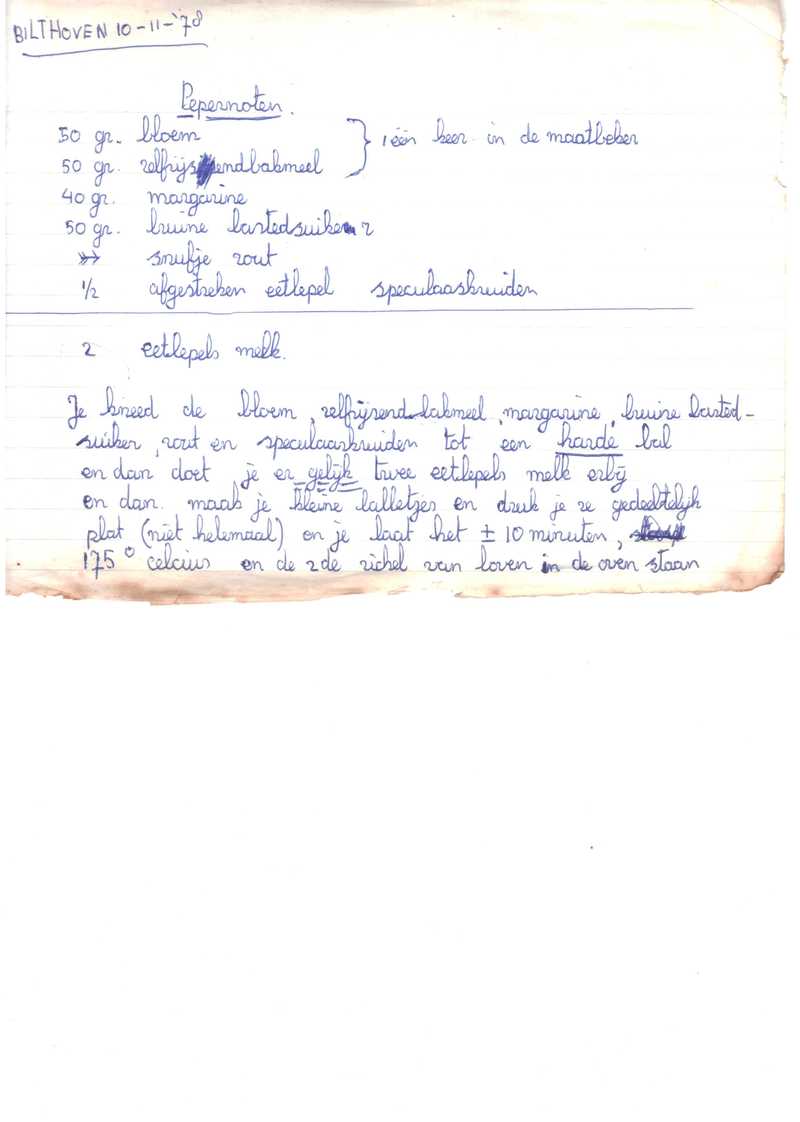 BILTHOVEN 10-11-'78
Pepernoten.
50 gr. bloem } 1 één keer in de maatbeker
50 gr. zelfrijsendbakmeel
40 gr. margarine
50 gr. bruine bastedsuiker
snufje zout
1/2 afgestreken eetlepel speculaaskruiden
2 eetlepels melk.
Je kneed de bloem, zelfrijzendbakmeel, margarine, bruine basted-
suiker, zout en speculaaskruiden tot een harde bal
en dan doet je er gelijk twee eetlepels melk erbij
en dan maak je kleine balletjes en druk je ze gedeeltelijk
plat (niet helemaal) en je laat het ± 10 minuten,
175° celcius en de 2de richel van boven in de oven staan